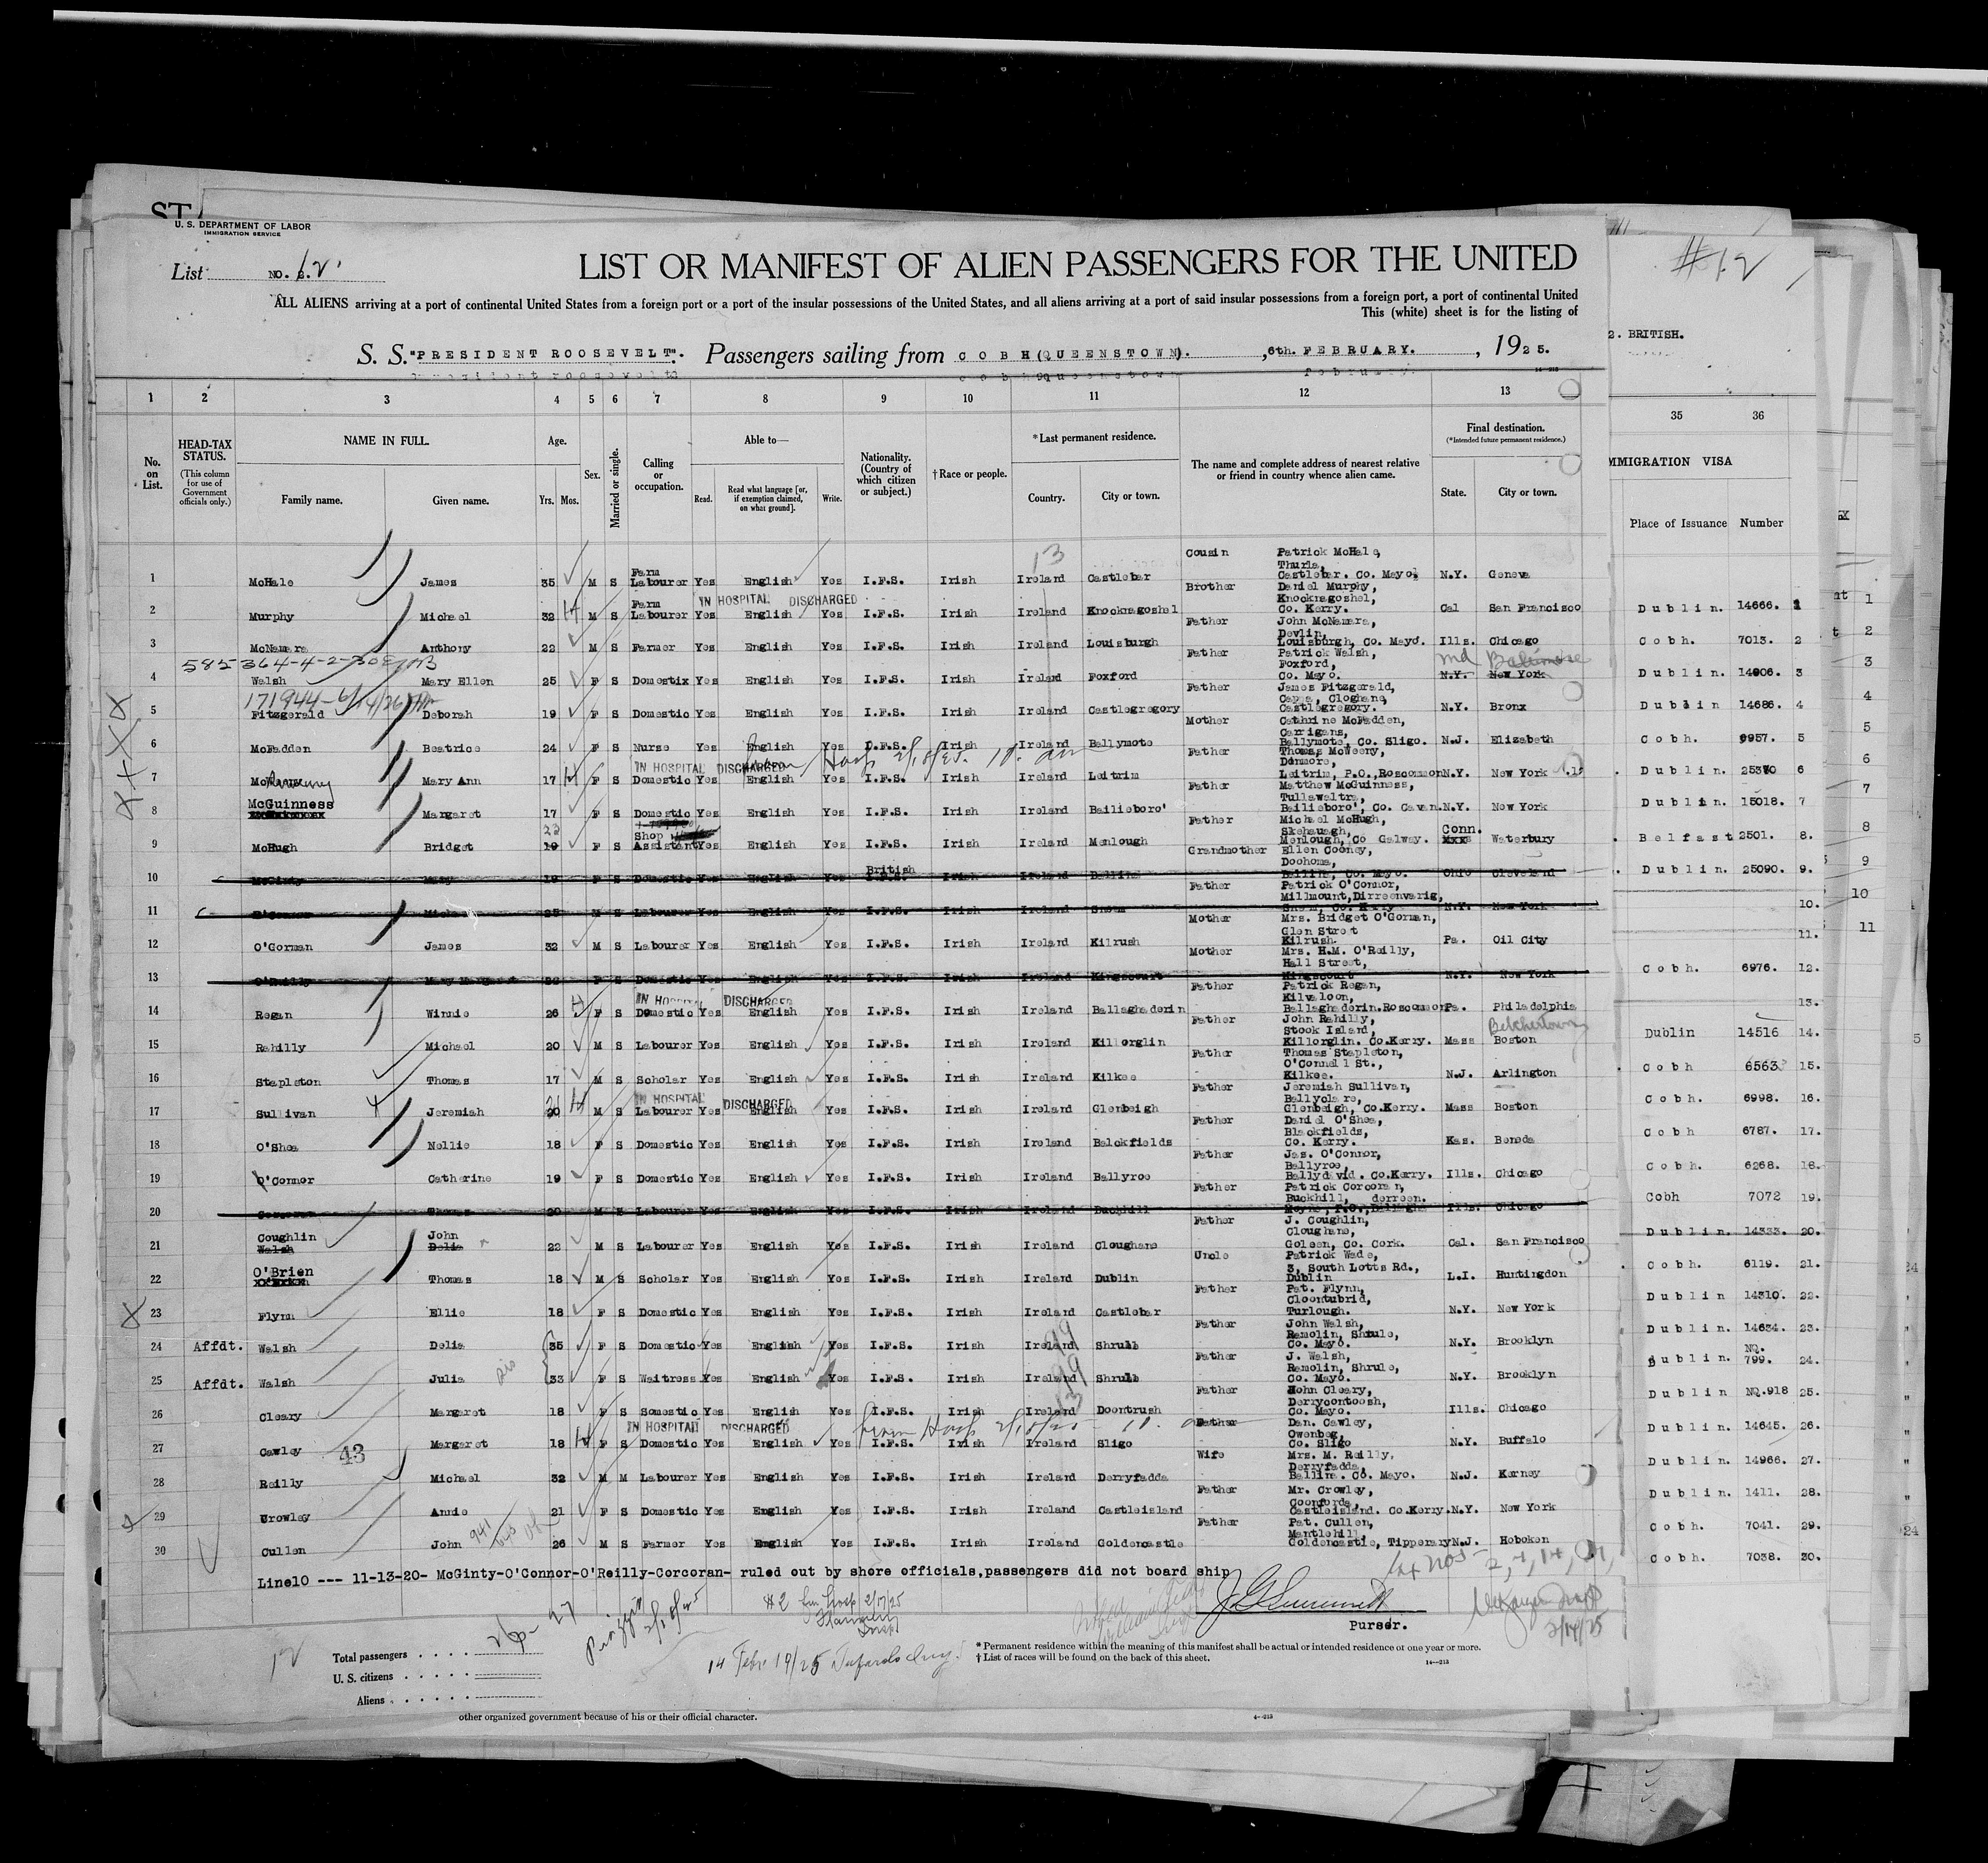 U. S. DEPARTMENT OF LABOR
IMMIGRATION SERVICE
List NO. 12
LIST OR MANIFEST OF ALIEN PASSENGERS FOR THE UNITED
#12
ALL ALIENS arriving at a port of continental United States from a foreign port or a port of the insular possessions of the United States, and all aliens arriving at a port of said insular possessions from a foreign port, a port of continental United
This (white) sheet is for the listing of
2. BRITISH.
S. S. "PRESIDENT ROOSEVELT". Passengers sailing from COBH(QUEENSTOWN). ,6th. FEBRUARY. , 1925.
1 2 3 4 5 6 7 8 9 10 11 12 13 35 36
No. on List.
HEAD-TAX STATUS.
(This column for use of Government officials only.)
NAME IN FULL.
Family name. Given name.
Age.
Yrs. Mos.
Sex.
Married or single.
Calling or occupation.
Able to—
Read. Read what language [or, if exemption claimed, on what ground]. Write.
Nationality. (Country of which citizen or subject.)
†Race or people.
*Last permanent residence.
Country. City or town.
The name and complete address of nearest relative or friend in country whence alien came.
Final destination.
(*Intended future permanent residence.)
State. City or town.
IMMIGRATION VISA
Place of Issuance Number
13
1 McHale James 35 M S Farm Labourer Yes English Yes I.F.S. Irish Ireland Castlebar Cousin Patrick McHale, Thurla, Castlebar. Co. Mayo. N.Y. Geneva Dublin. 14666. 1
IN HOSPITAL DISCHARGED
2 Murphy Michael 32 M S Farm Labourer Yes English Yes I.F.S. Irish Ireland Knocknagoshel Brother Daniel Murphy, Knocknagoshel, Co. Kerry. Cal San Francisco Cobh. 7013. 2
3 McNamara Anthony 22 M S Farmer Yes English Yes I.F.S. Irish Ireland Louisburgh Father John McNamara, Devlin, Louisburgh, Co. Mayo. Ills. Chicago Dublin. 14906. 3
4 Walsh Mary Ellen 25 F S Domestix Yes English Yes I.F.S. Irish Ireland Foxford Father Patrick Walsh, Foxford, Co. Mayo. N.Y. New York Md Baltimore Dublin 14686. 4
5 Fitzgerald Deborah 19 F S Domestic Yes English Yes I.F.S. Irish Ireland Castlegregory Father James Fitzgerald, Cappa, Cloghane, Castlegregory. N.Y. Bronx Cobh. 6957. 5
6 McFadden Beatrice 24 F S Nurse Yes English Yes I.F.S. Irish Ireland Ballymote Mother Cathrine McFadden, Carrigans, Ballymote, Co. Sligo. N.J. Elizabeth Dublin. 25370 6
IN HOSPITAL DISCHARGED
7 Mary Ann 17 F S Domestic Yes English Yes I.F.S. Irish Ireland Leitrim Father Thomas McWeeny, Donmore, Leitrim, P.O.,Roscommon N.Y. New York Dublin. 15018. 7
8 McGuinness Margaret 17 F S Domestic Yes English Yes I.F.S. Irish Ireland Bailieboro' Father Matthew McGuinness, Tullawaltra, Bailieboro', Co. Cavan. N.Y. New York Belfast 2501. 8.
9 McHugh Bridget 19 22 F S Shop Assistant Yes English Yes I.F.S. Irish Ireland Menlough Father Michael McHugh, Skehaugh, Menlough, Co Galway. Conn. Waterbury Dublin. 25090. 9.
10 McGinty Mary 18 F S Domestic Yes English Yes British Irish Ireland Ballina Grandmother Ellen Cooney, Doohoma, Ballina, Co. Mayo. Ohio Cleveland 10.
11 O'Connor Michael 25 M S Labourer Yes English Yes I.F.S. Irish Ireland Sneem Father Patrick O'Connor, Millmount,Dirreenvarig, Sneem, Co. Kerry N.Y. New York 11.
12 O'Gorman James 32 M S Labourer Yes English Yes I.F.S. Irish Ireland Kilrush Mother Mrs. Bridget O'Gorman, Glen Street Kilrush. Pa. Oil City Cobh. 6976. 12.
13 O'Reilly Mary Margaret F S Domestic Yes English Yes I.F.S. Irish Ireland Kingscourt Mother Mrs. H.M. O'Reilly, Hall Street, Kingscourt N.Y. New York 13.
IN HOSPITAL DISCHARGED
14 Regan Winnie 26 F S Domestic Yes English Yes I.F.S. Irish Ireland Ballaghaderin Father Patrick Regan, Kilvaloon, Ballaghaderin.Roscommon Pa. Philadelphia Dublin 14516 14.
15 Rahilly Michael 20 M S Labourer Yes English Yes I.F.S. Irish Ireland Killorglin Father John Rahilly, Stook Island, Killorglin. Co.Kerry. Mass Boston Belchertown Cobh 6563 15.
16 Stapleton Thomas 17 M S Scholar Yes English Yes I.F.S. Irish Ireland Kilkee Father Thomas Stapleton, O'Connell St., Kilkee. N.J. Arlington Cobh. 6998. 16.
IN HOSPITAL DISCHARGED
17 Sullivan Jeremiah 20 M S Labourer Yes English Yes I.F.S. Irish Ireland Glenbeigh Father Jeremiah Sullivan, Ballyclare, Glenbeigh, Co.Kerry. Mass Boston Cobh 6787. 17.
18 O'Shea Nellie 18 F S Domestic Yes English Yes I.F.S. Irish Ireland Balckfields Father Daniel O'Shea, Blackfields, Co. Kerry. Kas. Beneda Cobh. 6268. 18.
19 O'Connor Catherine 19 F S Domestic Yes English Yes I.F.S. Irish Ireland Ballyroe Father Jas. O'Connor, Ballyroe, Ballydavid. Co.Kerry. Ills. Chicago Cobh 7072 19.
20 Corcoran Thomas 20 M S Labourer Yes English Yes I.F.S. Irish Ireland Buckhill Father Patrick Corcoran, Buckhill, derreen. Ills. Chicago Dublin. 14333. 20.
21 Coughlin Walsh John Delia 22 M S Labourer Yes English Yes I.F.S. Irish Ireland Cloughane Father J. Coughlin, Cloughane, Goleen, Co. Cork. Cal. San Francisco Cobh. 6119. 21.
22 O'Brien Thomas 18 M S Scholar Yes English Yes I.F.S. Irish Ireland Dublin Uncle Patrick Wade, 3, South Lotts Rd., Dublin L.I. Huntingdon Dublin 14310. 22.
23 Flynn Ellie 18 F S Domestic Yes English Yes I.F.S. Irish Ireland Castlebar Father Pat. Flynn, Cloontubrid, Turlough. N.Y. New York Dublin. 14634. 23.
24 Affdt. Walsh Delia 35 F S Domestic Yes English Yes I.F.S. Irish Ireland Shrull Father John Walsh, Ramolin, Shrule, Co. Mayo. N.Y. Brooklyn Dublin. NQ. 799. 24.
25 Affdt. Walsh Julia sis 33 F S Waitress Yes English Yes I.F.S. Irish Ireland Shrull Father J. Walsh, Ramolin, Shrule, Co. Mayo. N.Y. Brooklyn Dublin NQ.918 25.
26 Cleary Margaret 18 F S Somestic Yes English Yes I.F.S. Irish Ireland Doontrush Father John Cleary, Derrycontoosh, Co. Mayo. Ills. Chicago Dublin. 14645. 26.
IN HOSPITAL DISCHARGED
27 Cawley 43 Margaret 18 F S Domestic Yes English Yes I.F.S. Irish Ireland Sligo Father Dan. Cawley, Owenbeg, Co. Sligo N.Y. Buffalo Dublin. 14966. 27.
28 Reilly Michael 32 M M Labourer Yes English Yes I.F.S. Irish Ireland Derryfadda Wife Mrs. M. Reilly, Derryfadda, Ballina. Co. Mayo. N.J. Kerney Dublin. 1411. 28.
29 Crowley Annie 21 F S Domestic Yes English Yes I.F.S. Irish Ireland Castleisland Father Mr. Crowley, Coonforda, Castleisland. Co.Kerry. N.Y. New York Cobh. 7041. 29.
30 Cullen John 26 M S Farmer Yes English Yes I.F.S. Irish Ireland Goldencastle Father Pat. Cullen, Mantlehill, Goldencastle, Tipperary N.J. Hoboken Cobh. 7038. 30.
Line10 --- 11-13-20- McGinty-O'Connor-O'Reilly-Corcoran- ruled out by shore officials,passengers did not board ship
Purser.
2/14/25
Total passengers
U. S. citizens
Aliens
* Permanent residence within the meaning of this manifest shall be actual or intended residence of one year or more.
† List of races will be found on the back of this sheet.
14—213
other organized government because of his or their official character.